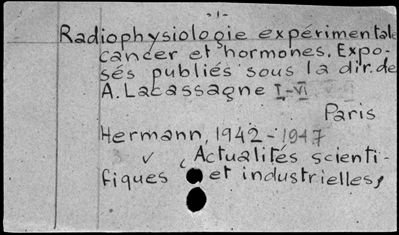 -1-
Radiophysiologie expérimentale
cancer et hormones. Expo-
sés publiés sous la dir. de
A. Lacassagne I-VI
Paris
Hermann, 1942-1947
v , Actualités scienti-
fiques et industrielles,